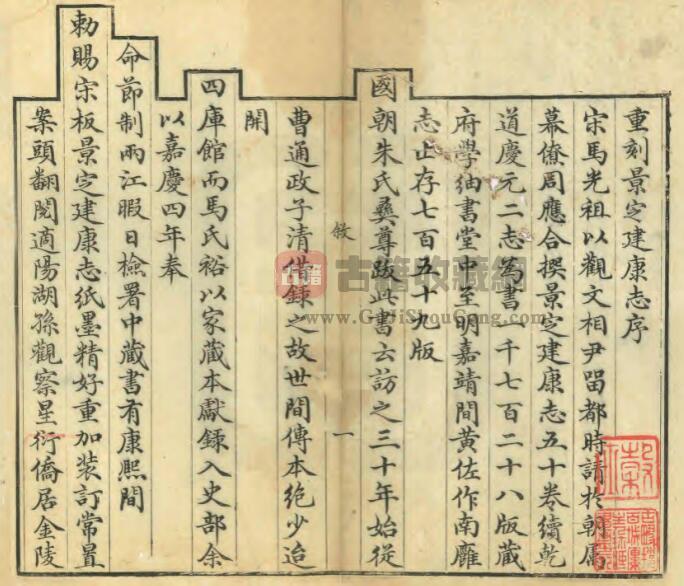 重刻景定建康志序
宋馬光祖以觀文相尹畱都時請於朝屬
幕僚周應合撰景定建康志五十卷續乾
道慶元二志爲書一千七百二十八版藏
府學紬書堂中至明嘉靖間黃佐作南廱
志止存七百五十九版
國朝朱氏彝尊跋此書云訪之三十年始從
敘 一
曹通政子清借錄之故世間傳本絶少迨
開
四庫館而馬氏裕以家藏本獻錄入史部余
以嘉慶四年奉
命節制兩江暇日檢署中藏書有康熙間
勅賜宋板景定建康志紙墨精好重加裝訂常置
案頭翻閱適陽湖孫觀察星衍僑居金陵
古籍
古籍收藏網
www.GuJiShouCang.com